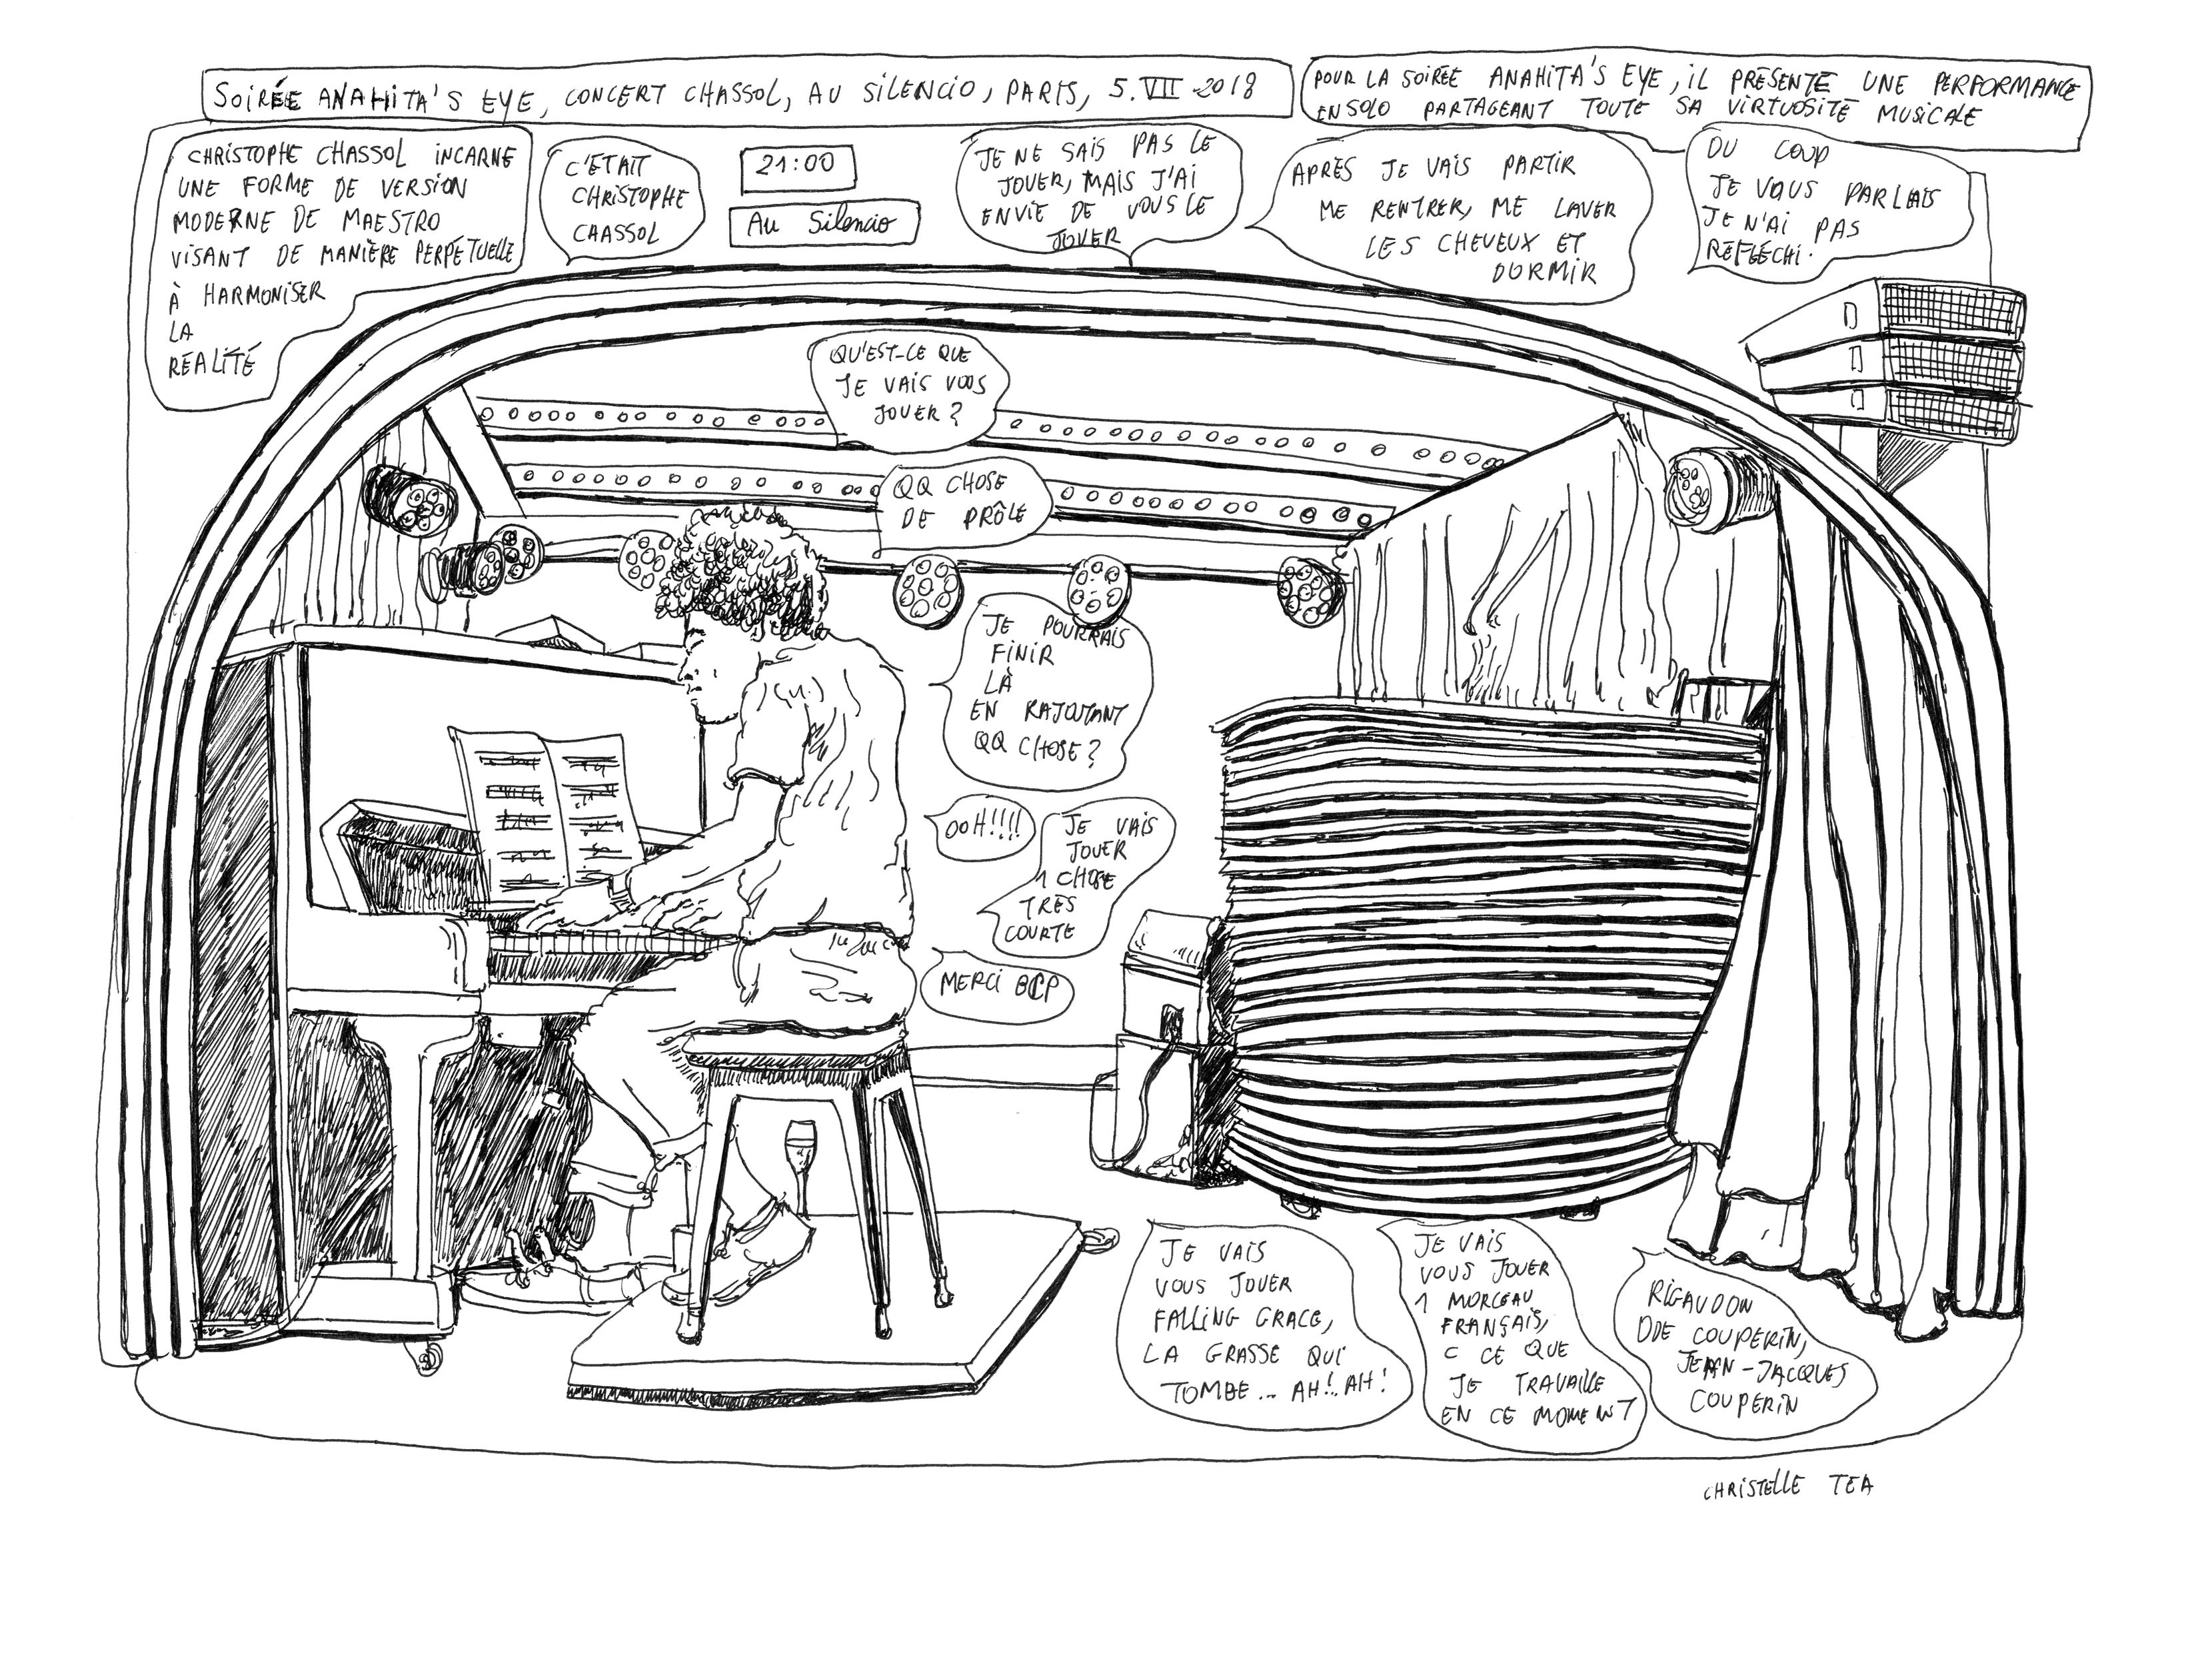 SOIRÉE ANAHITA'S EYE, CONCERT CHASSOL, AU SILENCIO, PARIS, 5.VII.2018
POUR LA SOIRÉE ANAHITA'S EYE, IL PRÉSENTE UNE PERFORMANCE
EN SOLO PARTAGEANT TOUTE SA VIRTUOSITÉ MUSICALE
CHRISTOPHE CHASSOL INCARNE
UNE FORME DE VERSION
MODERNE DE MAESTRO
VISANT DE MANIÈRE PERPÉTUELLE
À HARMONISER
LA
RÉALITÉ
C'ÉTAIT
CHRISTOPHE
CHASSOL
21:00
Au Silencio
JE NE SAIS PAS LE
JOUER, MAIS J'AI
ENVIE DE VOUS LE
JOUER
APRÈS JE VAIS PARTIR
ME RENTRER, ME LAVER
LES CHEVEUX ET
DORMIR
DU COUP
JE VOUS PARLAIS
JE N'AI PAS
RÉFLÉCHI.
QU'EST-CE QUE
JE VAIS VOUS
JOUER ?
QQ CHOSE
DE DRÔLE
JE POURRAIS
FINIR
LÀ
EN RAJOUTANT
QQ CHOSE ?
OOH!!!!
JE VAIS
JOUER
1 CHOSE
TRÈS
COURTE
MERCI BCP
JE VAIS
VOUS JOUER
FALLING GRACE,
LA GRASSE QUI
TOMBE... AH!. AH!
JE VAIS
VOUS JOUER
1 MORCEAU
FRANÇAIS,
C CE QUE
JE TRAVAILLE
EN CE MOMENT
RIGAUDON
DDE COUPERIN,
JEAN-JACQUES
COUPERIN
CHRISTELLE TEA